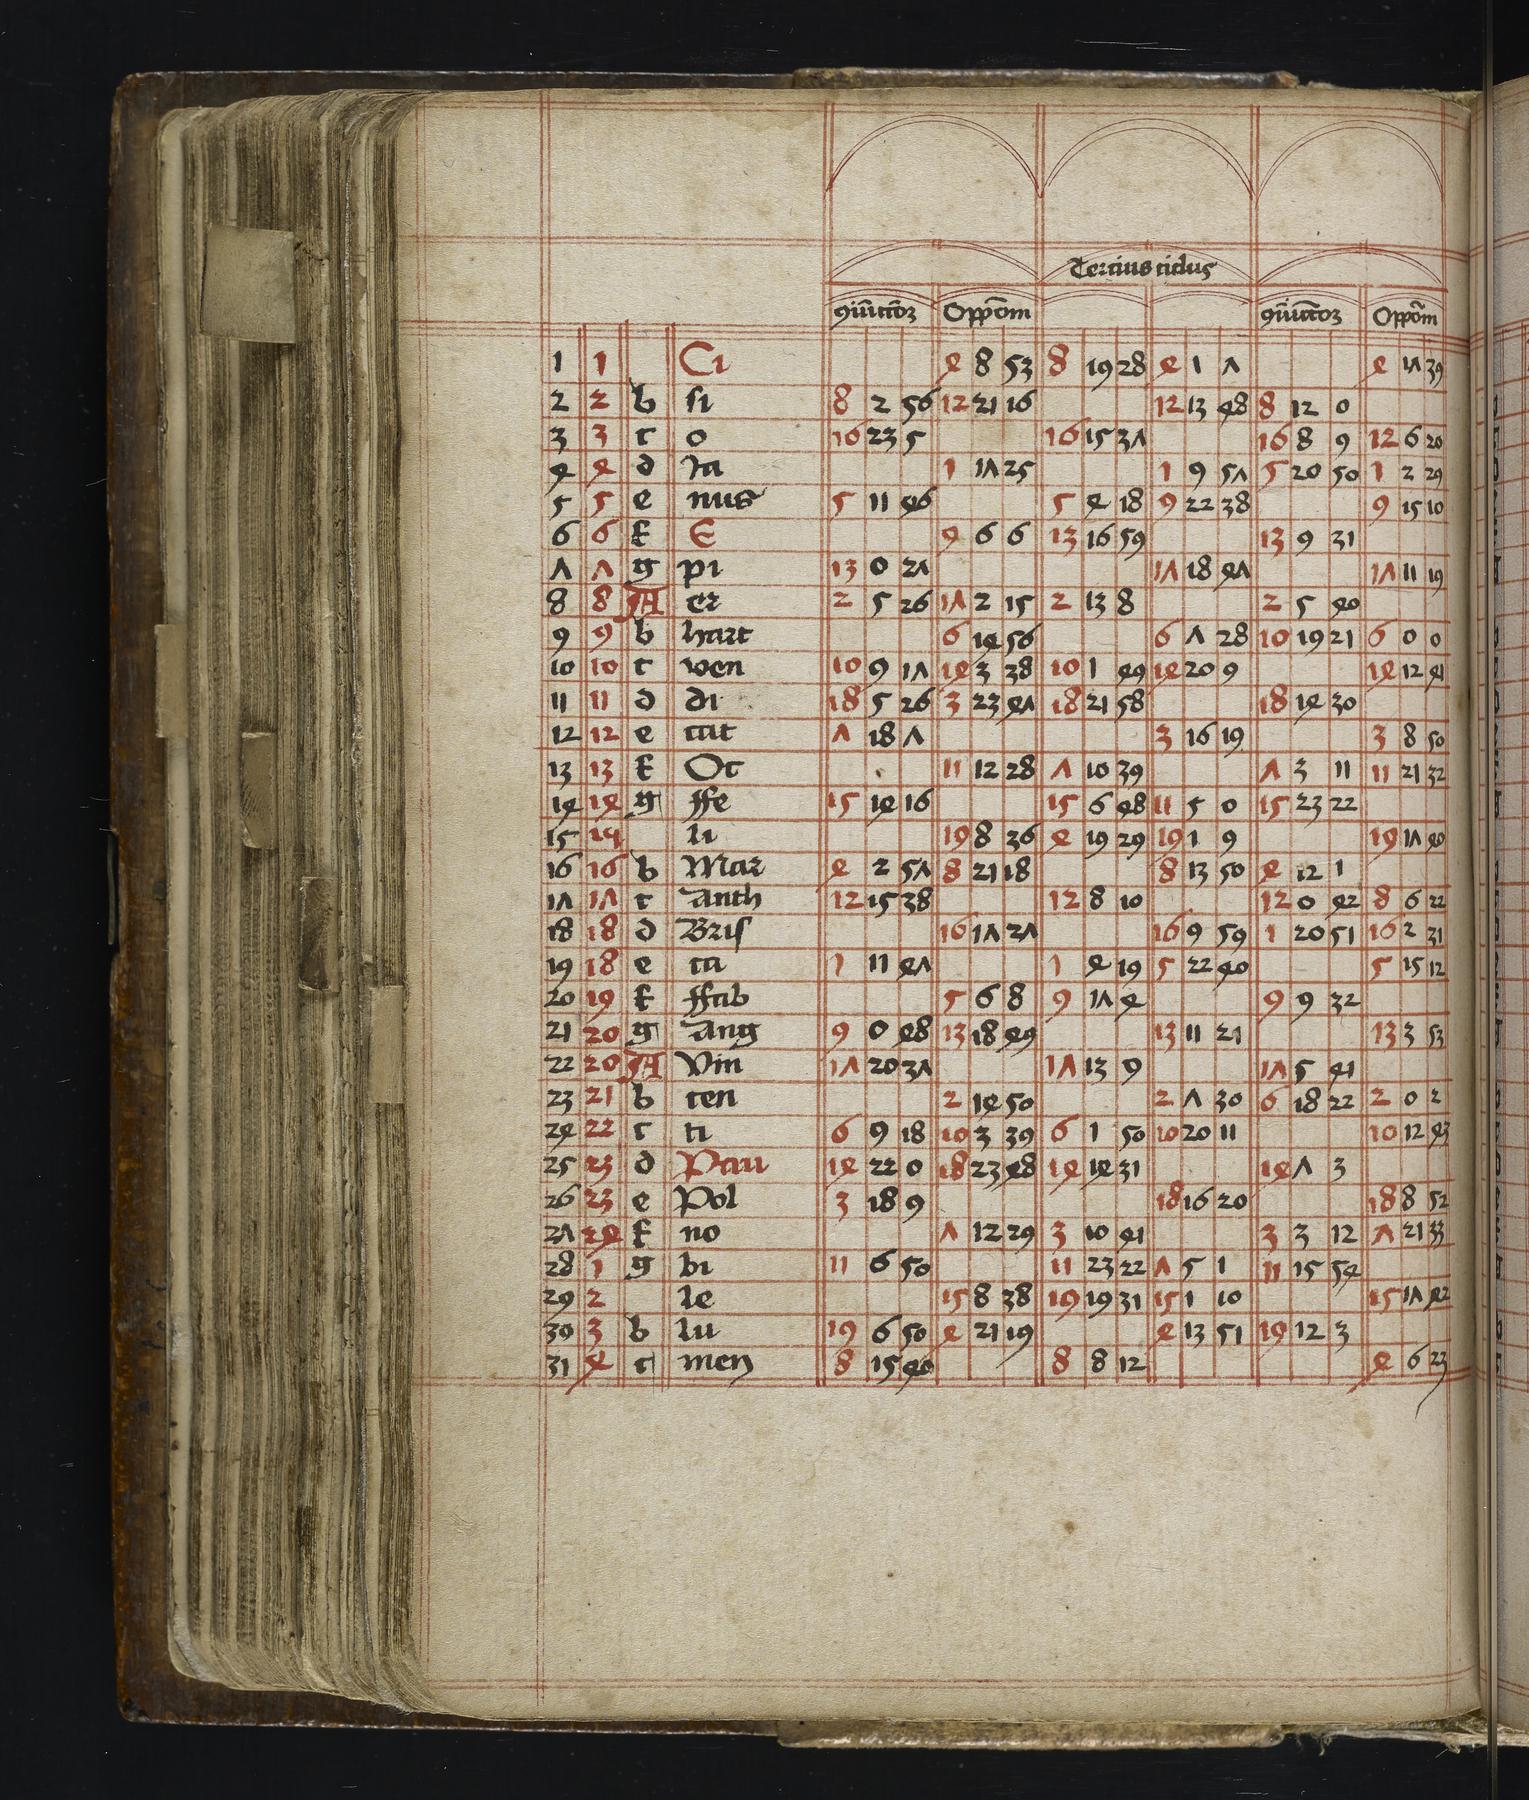 Tercius ciclus
Oppom Oppom
1 1 Ci 4 8 53 8 19 28 4 1 7 4 17 39
2 2 b si 8 2 56 12 21 16 12 13 48 8 12 0
3 3 c o 16 23 5 16 15 37 16 8 9 12 6 20
4 4 d Ia 1 17 25 1 9 57 5 20 50 1 2 29
5 5 e nus 5 11 46 5 4 18 9 22 38 9 15 10
6 6 f E 9 6 6 13 16 59 13 9 31
7 7 g pi 13 0 27 17 18 47 17 11 19
8 8 A er 2 5 26 17 2 15 2 13 8 2 5 40
9 9 b hart 6 14 56 6 7 28 10 19 21 6 0 0
10 10 c ven 10 9 17 14 3 38 10 1 49 14 20 9 14 12 41
11 11 d di 18 5 26 3 23 47 18 21 58 18 14 30
12 12 e cat 7 18 7 3 16 19 3 8 50
13 13 f Oc 11 12 28 7 10 39 7 3 11 11 21 32
14 14 g ffe 15 14 16 15 6 48 11 5 0 15 23 22
15 14 li 19 8 36 4 19 29 19 1 9 19 17 40
16 16 b Mar 4 2 57 8 21 18 8 13 50 4 12 1
17 17 c Anth 12 15 38 12 8 10 12 0 42 8 6 22
18 18 d Bris 16 17 27 16 9 59 1 20 51 16 2 31
19 18 e ca 1 11 47 1 4 19 5 22 40 5 15 12
20 19 f ffab 5 6 8 9 17 4 9 9 32
21 20 g Ang 9 0 48 13 18 49 13 11 21 13 3 53
22 20 A Vin 17 20 37 17 13 9 17 5 41
23 21 b cen 2 14 50 2 7 30 6 18 22 2 0 2
24 22 c ti 6 9 18 10 3 39 6 1 50 10 20 11 10 12 43
25 23 d Pau 14 22 0 18 23 48 14 14 31 14 7 3
26 23 e Pol 3 18 9 18 16 20 18 8 52
27 24 f no 7 12 29 3 10 41 3 3 12 7 21 33
28 1 g bi 11 6 50 11 23 22 7 5 1 11 15 54
29 2 le 15 8 38 19 19 31 15 1 10 15 17 42
30 3 b lu 19 6 50 4 21 19 4 13 51 19 12 3
31 4 c men 8 15 40 8 8 12 4 6 23